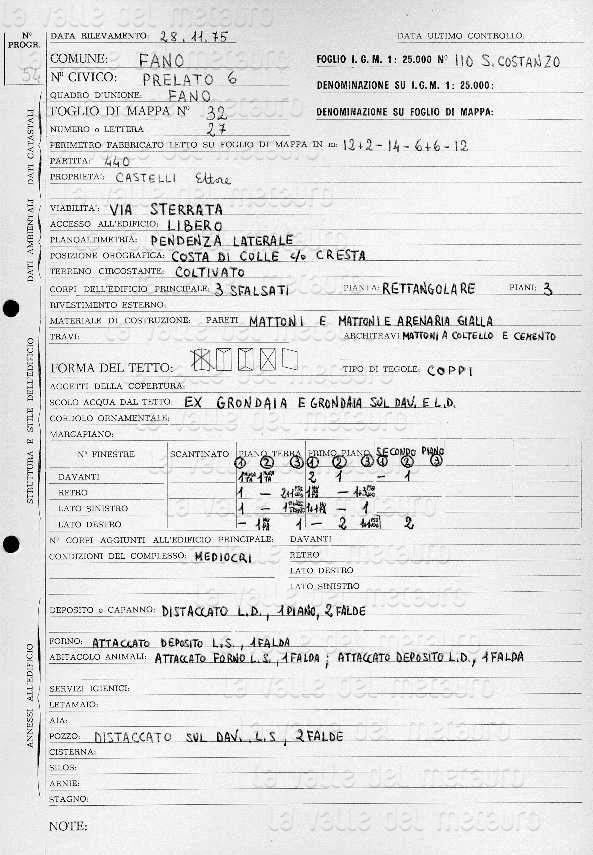 N° PROGR. 54
DATA RILEVAMENTO: 28.11.75 DATA ULTIMO CONTROLLO:
COMUNE: FANO FOGLIO I.G.M. 1: 25.000 N° 110 S.COSTANZO
N° CIVICO: PRELATO 6 DENOMINAZIONE SU I.G.M. 1: 25.000:
QUADRO D'UNIONE: FANO
FOGLIO DI MAPPA N° 32 DENOMINAZIONE SU FOGLIO DI MAPPA:
NUMERO o LETTERA 27
PERIMETRO FABBRICATO LETTO SU FOGLIO DI MAPPA IN m: 12+2-14-6+6-12
PARTITA: 440
PROPRIETA': CASTELLI Ettore
DATI CATASTALI
VIABILITA': VIA STERRATA
ACCESSO ALL'EDIFICIO: LIBERO
PLANOALTIMETRIA: PENDENZA LATERALE
POSIZIONE OROGRAFICA: COSTA DI COLLE c/o CRESTA
TERRENO CIRCOSTANTE: COLTIVATO
DATI AMBIENTALI
CORPI DELL'EDIFICIO PRINCIPALE: 3 SFALSATI PIANTA: RETTANGOLARE PIANI: 3
RIVESTIMENTO ESTERNO:
MATERIALE DI COSTRUZIONE: PARETI MATTONI E MATTONI E ARENARIA GIALLA
TRAVI: ARCHITRAVI MATTONI A COLTELLO E CEMENTO
FORMA DEL TETTO: TIPO DI TEGOLE: COPPI
AGGETTI DELLA COPERTURA:
SCOLO ACQUA DAL TETTO: EX GRONDAIA E GRONDAIA SUL DAV. E L.D.
CORDOLO ORNAMENTALE:
MARCAPIANO:
N° FINESTRE SCANTINATO PIANO TERRA PRIMO PIANO SECONDO PIANO
1 2 3 1 2 3 1 2 3
DAVANTI 2 1 - 1
RETRO 1 -
LATO SINISTRO 1 - - 1
LATO DESTRO - 1 - 2 2
STRUTTURA E STILE DELL'EDIFICIO
N° CORPI AGGIUNTI ALL'EDIFICIO PRINCIPALE: DAVANTI
CONDIZIONI DEL COMPLESSO: MEDIOCRI RETRO
LATO DESTRO
LATO SINISTRO
DEPOSITO o CAPANNO: DISTACCATO L.D., 1 PIANO, 2 FALDE
FORNO: ATTACCATO DEPOSITO L.S., 1 FALDA
ABITACOLO ANIMALI: ATTACCATO FORNO L.S., 1 FALDA; ATTACCATO DEPOSITO L.D., 1 FALDA
SERVIZI IGIENICI:
LETAMAIO:
AIA:
POZZO: DISTACCATO SUL DAV. L.S, 2 FALDE
CISTERNA:
SILOS:
ARNIE:
STAGNO:
ANNESSI ALL'EDIFICIO
NOTE:
La valle del metauro